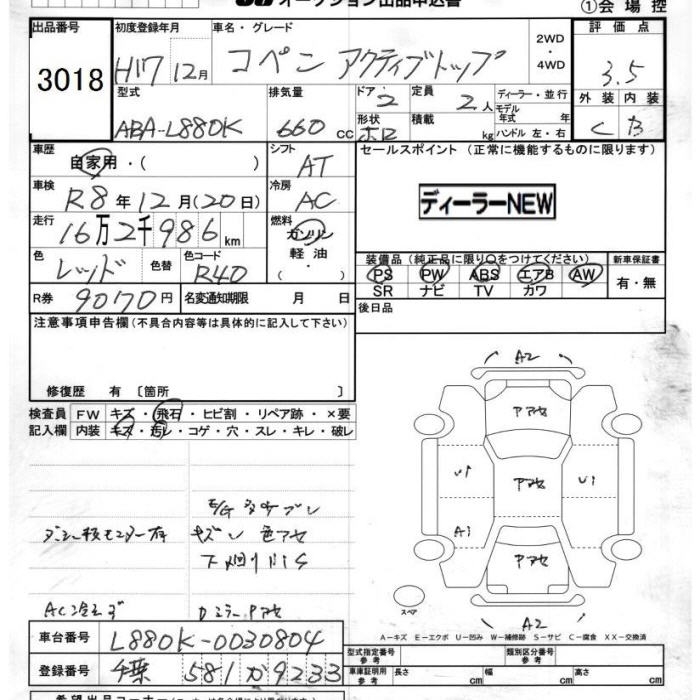 オークション出品申込書
①会場控
出品番号 初度登録年月 車名・グレード 評価点
3018 H17 12月 コペン アクティブトップ 2WD・4WD 3.5
型式 排気量 ドア 定員 ディーラー・並行 外装 内装
ABA-L880K 660cc 2 2人 モデル年式 年 C B
形状 積載 kg ハンドル 左・右
車歴 シフト セールスポイント (正常に機能するものに限ります)
自家用・( ) AT
車検 冷房
R8年12月(20日) AC ディーラーNEW
走行 燃料
16万2千986km ガソリン
軽油
色 色替 色コード ・( ) 装備品(純正品に限り○をつけてください) 新車保証書
レッド R40 PS PW ABS エアB AW 有・無
SR ナビ TV カワ
R券 9070円 名変通知期限 月 日
後日品
注意事項申告欄(不具合内容等は具体的に記入して下さい)
修復歴 有 〔箇所 〕
検査員 FW キズ・飛石・ヒビ割・リペア跡・×要
記入欄 内装 キズ・汚レ・コゲ・穴・スレ・キレ・破レ
A2
Pアセ
U1 Pアセ U1
A1
Pアセ
キズ 色アセ
下廻りサビ
スペア
A2
Dミラー Pアセ
A-キズ E-エクボ U-凹み W-補修跡 S-サビ C-腐食 XX-交換済
車台番号 L880K-0030804
型式指定番号 参考 類別区分番号 参考
登録番号 千葉 581 か 9233
車庫証明用 参考 長さ cm 幅 cm 高さ cm
希望出品コーナー